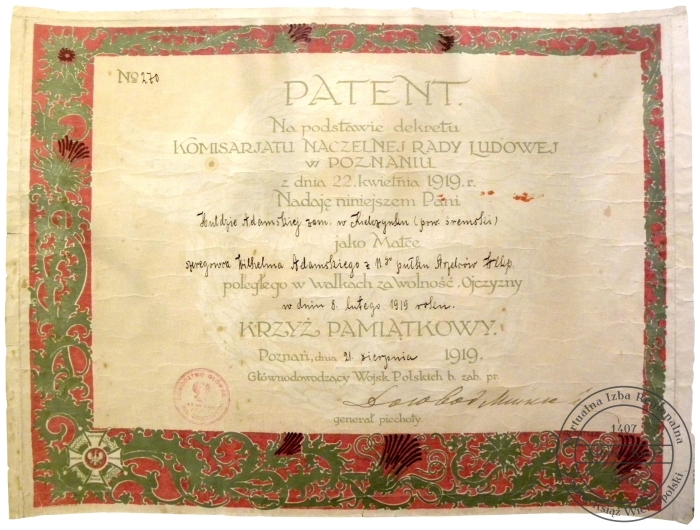 No 270
PATENT.
Na podstawie dekretu
KOMISARJATU NACZELNEJ RADY LUDOWEJ
w POZNANIU
z dnia 22. kwietnia 1919. r.
Nadaję niniejszem Pani
Huldzie Adamskiej zam. w Kiełczynku (pow. śremski)
jako Matce
szeregowca Wilhelma Adamskiego z 11go pułku Strzelców Wlkp.
poległego w walkach za wolność Ojczyzny
w dniu 8. lutego 1919 roku.
KRZYŻ PAMIĄTKOWY.
Poznań, dnia 21. sierpnia 1919.
Głównodowodzący Wojsk Polskich b. zab. pr.
generał piechoty.
Wirtualna Izba Regionalna
1407
Książ Wielkopolski